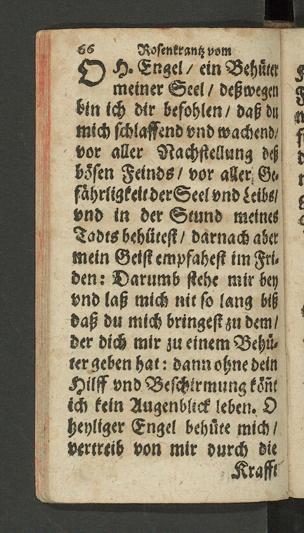 66 Rosenkrantz vom
O H. Engel / ein Behüter
meiner Seel / deßwegen
bin ich dir befohlen / daß du
mich schlaffend vnd wachend /
vor aller Nachstellung deß
bösen Feinds / vor aller Ge-
fährligkeit der Seel vnd Leibs /
vnd in der Stund meines
Todts behütest / darnach aber
mein Geist empfahest im Fri-
den: Darumb stehe mir bey
vnd laß mich nit so lang biß
daß du mich bringest zu dem /
der dich mir zu einem Behü-
ter geben hat: dann ohne dein
Hilff vnd Beschirmung könt
ich kein Augenblick leben. O
heyliger Engel behüte mich /
vertreib von mir durch die
Krafft